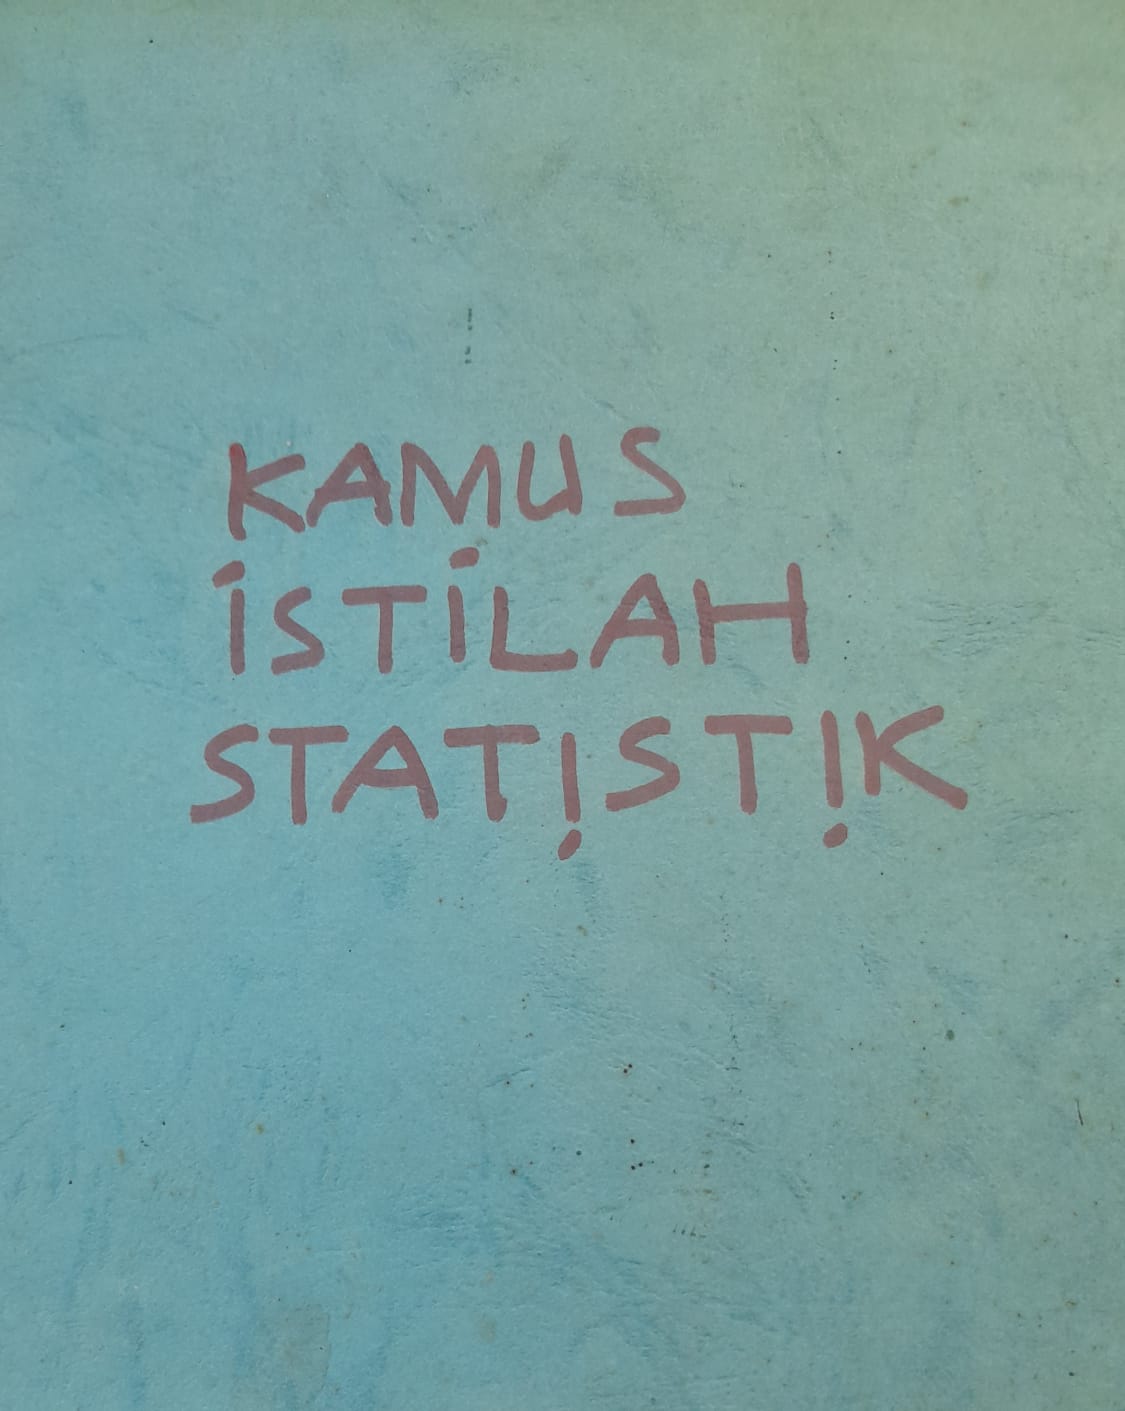 KAMUS
iSTiLAH
STATỊSTỊK